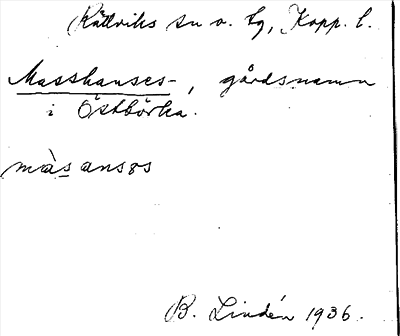 Rättviks sn o. tg, Kopp. l.
Masshanses-, gårdsnamn
i Östbörka.
màsansəs
B. Lindén 1936.